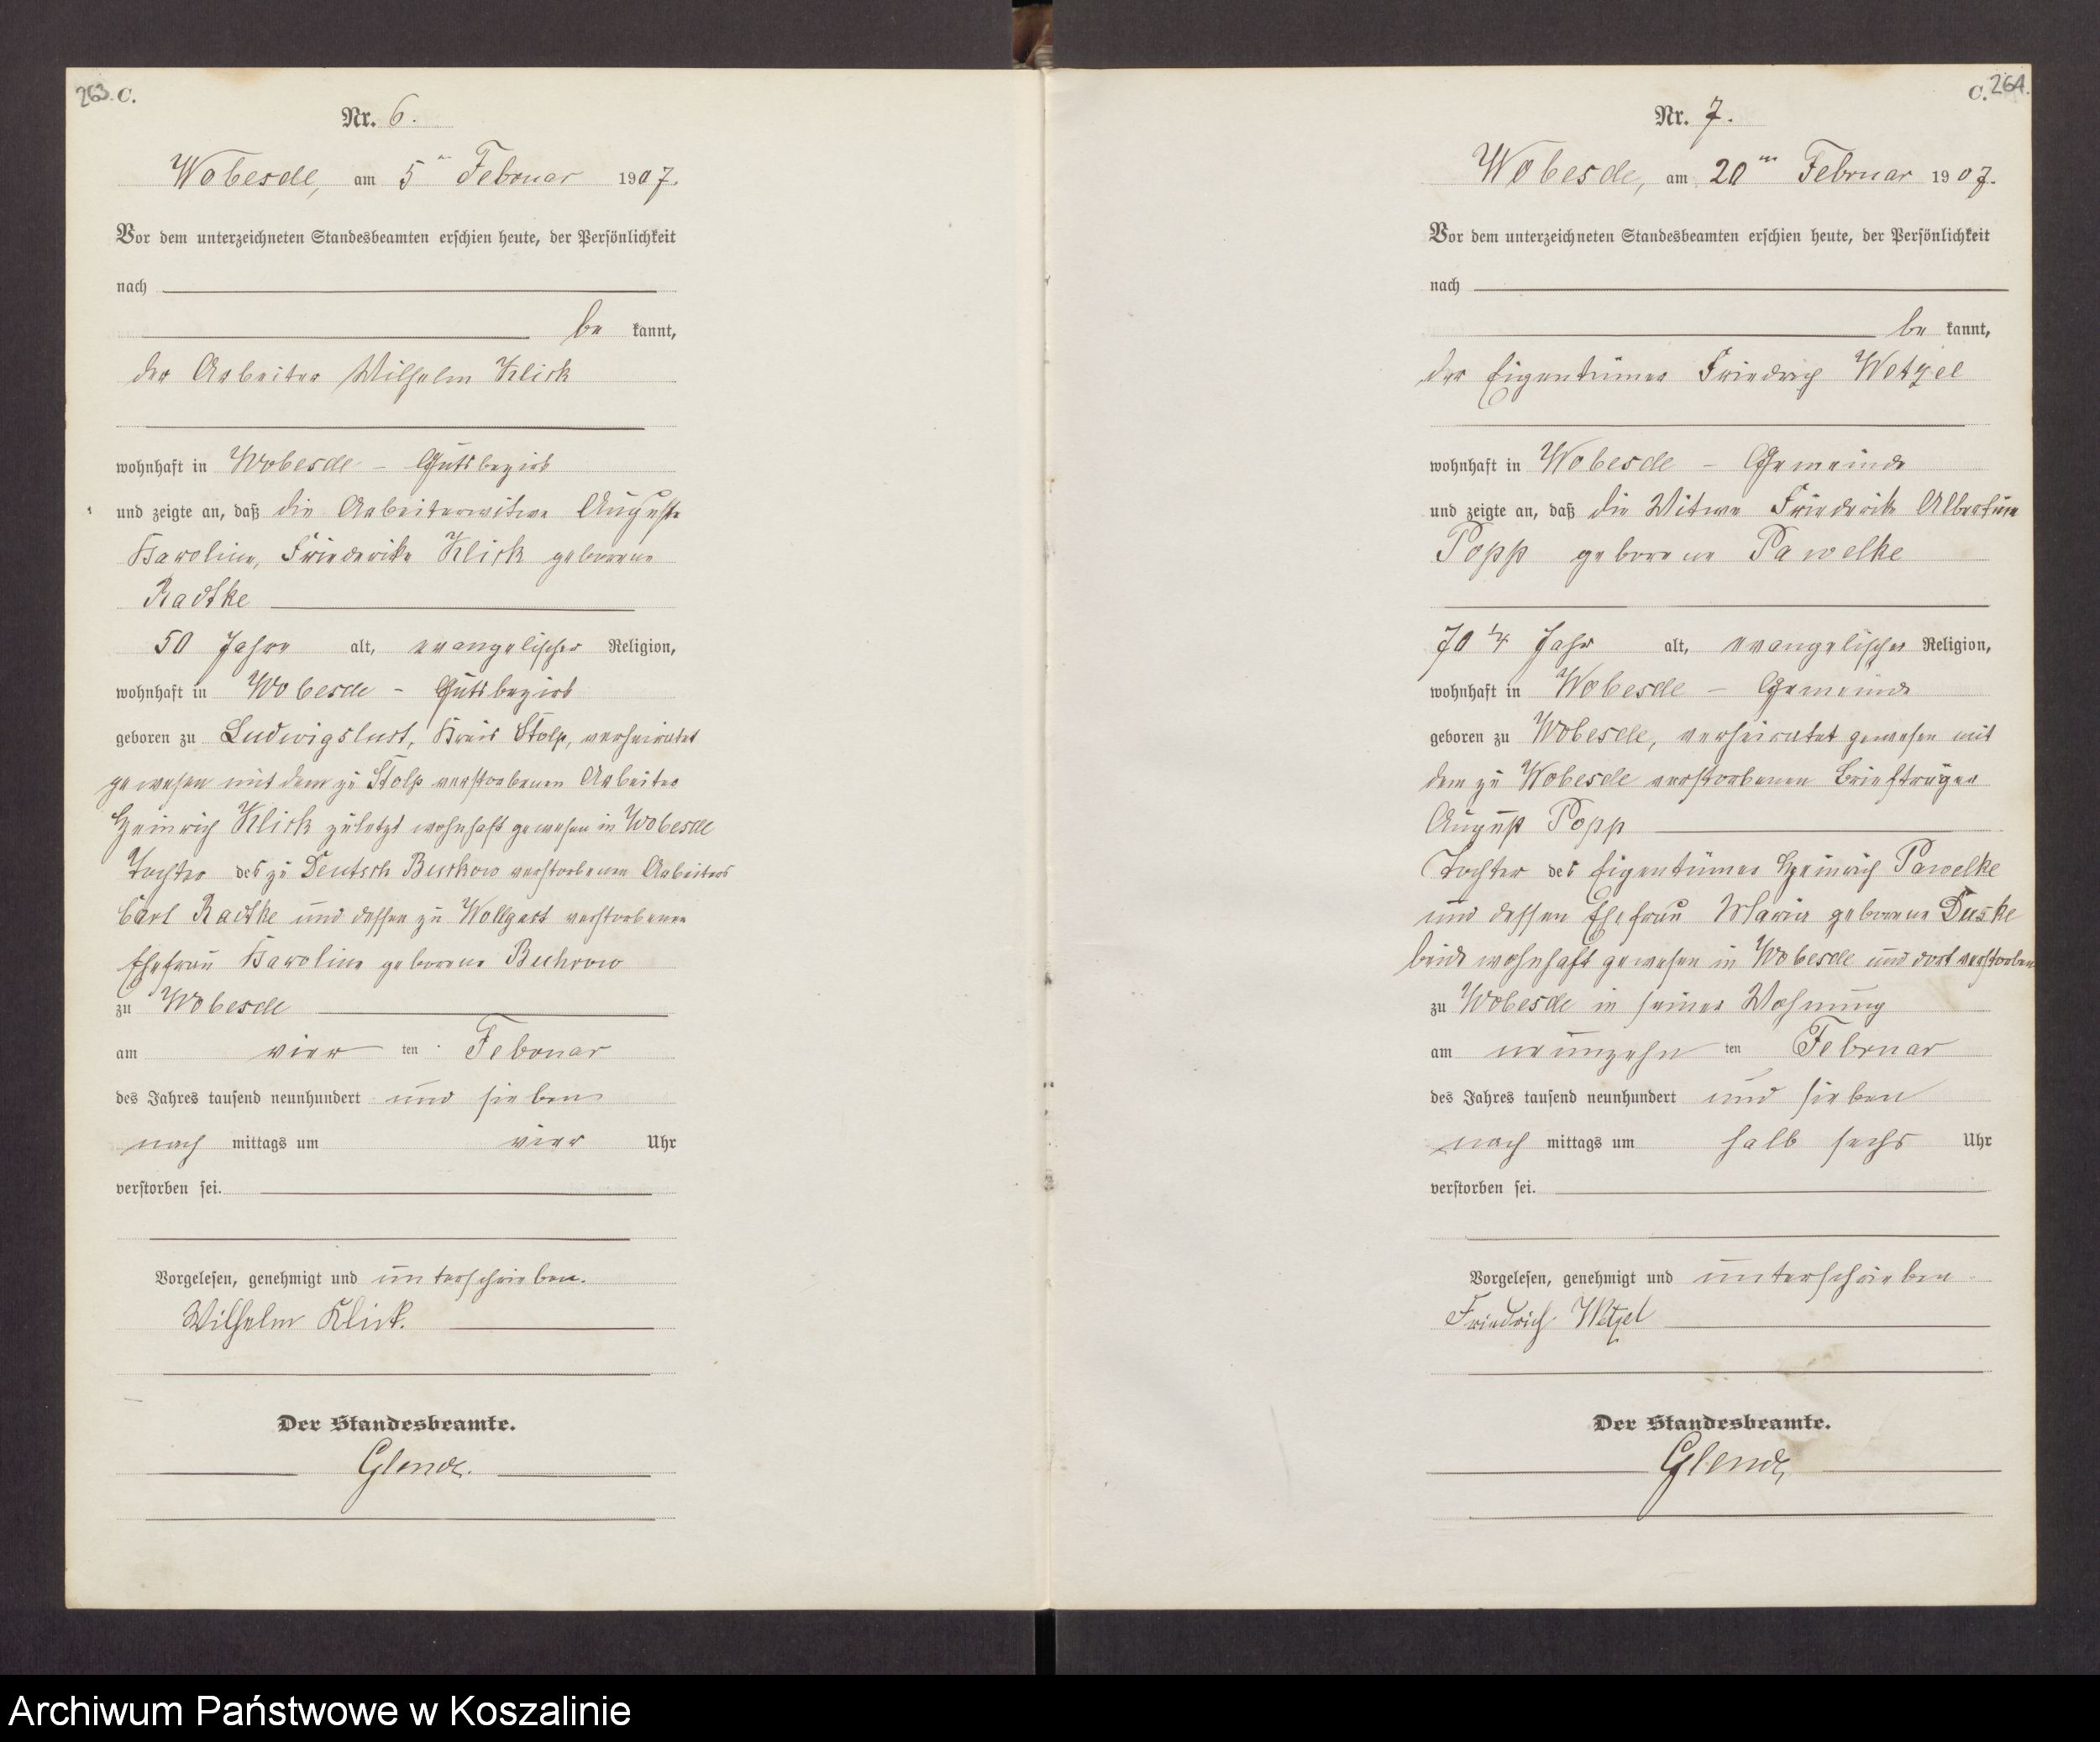 263. C.
Nr. 6.
Wobesde, am 5ten Februar 1907.
Vor dem unterzeichneten Standesbeamten erschien heute, der Persönlichkeit
nach
be kannt,
der Arbeiter Wilhelm Klick
wohnhaft in Wobesde - Gutsbezirk
und zeigte an, daß die Arbeiterwitwe Auguste
Karoline, Friederike Klick geborene
Radtke
50 Jahre alt, evangelischer Religion,
wohnhaft in Wobesde - Gutsbezirk
geboren zu Ludwigslust, Kreis Stolp, verheiratet
gewesen mit dem zu Stolp verstorbenen Arbeiter
Heinrich Klick zuletzt wohnhaft gewesen in Wobesde
Tochter des zu Deutsch Buckow verstorbenen Arbeiters
Carl Radtke und dessen zu Wollgast verstorbenen
Ehefrau Karoline geborene Buhrow
zu Wobesde
am vier ten Februar
des Jahres tausend neunhundert und sieben
nach mittags um vier Uhr
verstorben sei.
Vorgelesen, genehmigt und unterschrieben.
Wilhelm Klick.
Der Standesbeamte.
Glende.
C. 264.
Nr. 7.
Wobesde, am 20ten Februar 1907.
Vor dem unterzeichneten Standesbeamten erschien heute, der Persönlichkeit
nach
be kannt,
der Eigentümer Friedrich Wetzel
wohnhaft in Wobesde - Gemeinde
und zeigte an, daß die Witwe Friederike Albertine
Popp geborene Pawelke
70 1/4 Jahr alt, evangelischer Religion,
wohnhaft in Wobesde - Gemeinde
geboren zu Wobesde, verheiratet gewesen mit
dem zu Wobesde verstorbenen Briefträger
August Popp
Tochter des Eigentümer Heinrich Pawelke
und dessen Ehefrau Maria geborene Duske
beide wohnhaft gewesen in Wobesde und dort verstorben
zu Wobesde in seiner Wohnung
am neunzehn ten Februar
des Jahres tausend neunhundert und sieben
nach mittags um halb sechs Uhr
verstorben sei.
Vorgelesen, genehmigt und unterschrieben
Friedrich Wetzel
Der Standesbeamte.
Glende
Archiwum Państwowe w Koszalinie